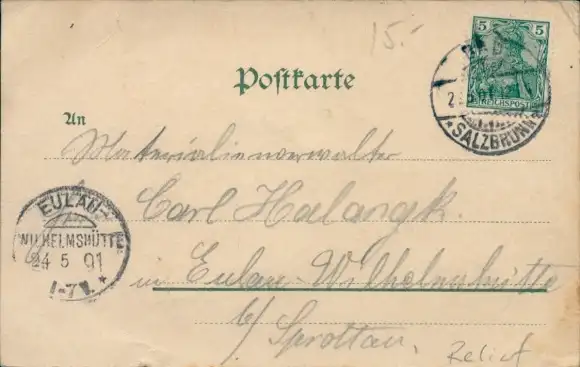 15.-
5 5
REICHSPOST
SALZBRUNN
Postkarte
An
Materialienverwalter
Carl Halangk.
in Eulau-Wilhelmshütte
b/ Sprottau.
EULAU-
WILHELMSHÜTTE
24 5 01
1-7V.
Relief